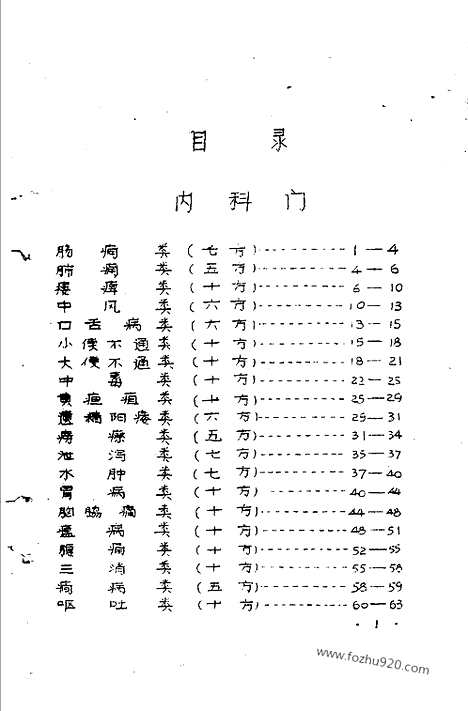 目 录
内 科 门
肠痈类(七方)--------------1—4
肺痈类(五方)--------------4—6
痿痹类(十方)--------------6—10
中风类(六方)--------------10—13
口舌病类(六方)--------------13—15
小便不通类(十方)--------------15—18
大便不通类(十方)--------------18—21
中毒类(十方)--------------22—25
黄疸类(十方)--------------25—29
阳痿类(六方)--------------29—31
类(五方)--------------31—34
泄泻类(七方)--------------35—37
水肿类(七方)--------------37—40
胃病类(十方)--------------40—44
胸脇痛类(十方)--------------44—48
病类(十方)--------------48—51
类(十方)--------------52—55
三消类(十方)--------------55—58
病类(五方)--------------58—59
呕吐类(十方)--------------60—63
· 1 ·
www.fozhu920.com